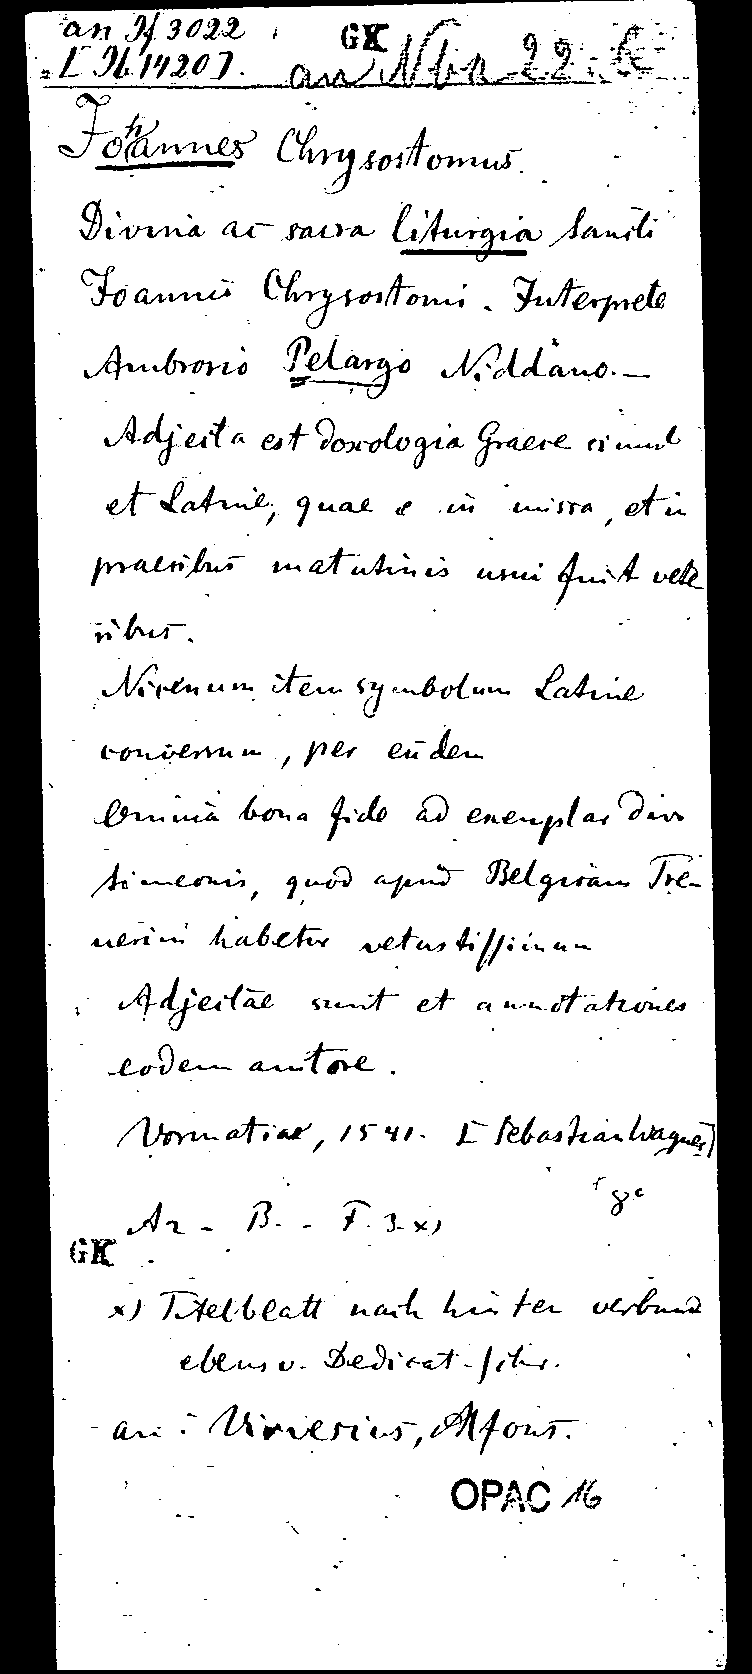 an If 3022
[Ib 14207.
GK
an Nba 22.
Johannes Chrysostomus.
Divina ac sacra liturgia Sancti
Joannis Chrysostomi. Interprete
Ambrosio Pelargo Niddano. —
Adjecta est doxologia Graece simul
et Latine, quae e in missa, et in
praecibus matutinis usui fuit vete
ribus.
Nicenum item symbolum Latine
conversum, per eūdem
Omnia bona fide ad exemplar divi
Simeonis, quod apud Belgicam Tre-
uerim habetur vetustissimum
Adjectae sunt et annotationes
eodem autore.
Vormatiae, 1541. [Sebastian Wagner]
8°
A2 - B. - F. 3. x)
GK
x) Titelblatt nach hinten verbund
ebenso. Dedicat.-schr.
an: Virvesius, Alfons.
OPAC 16